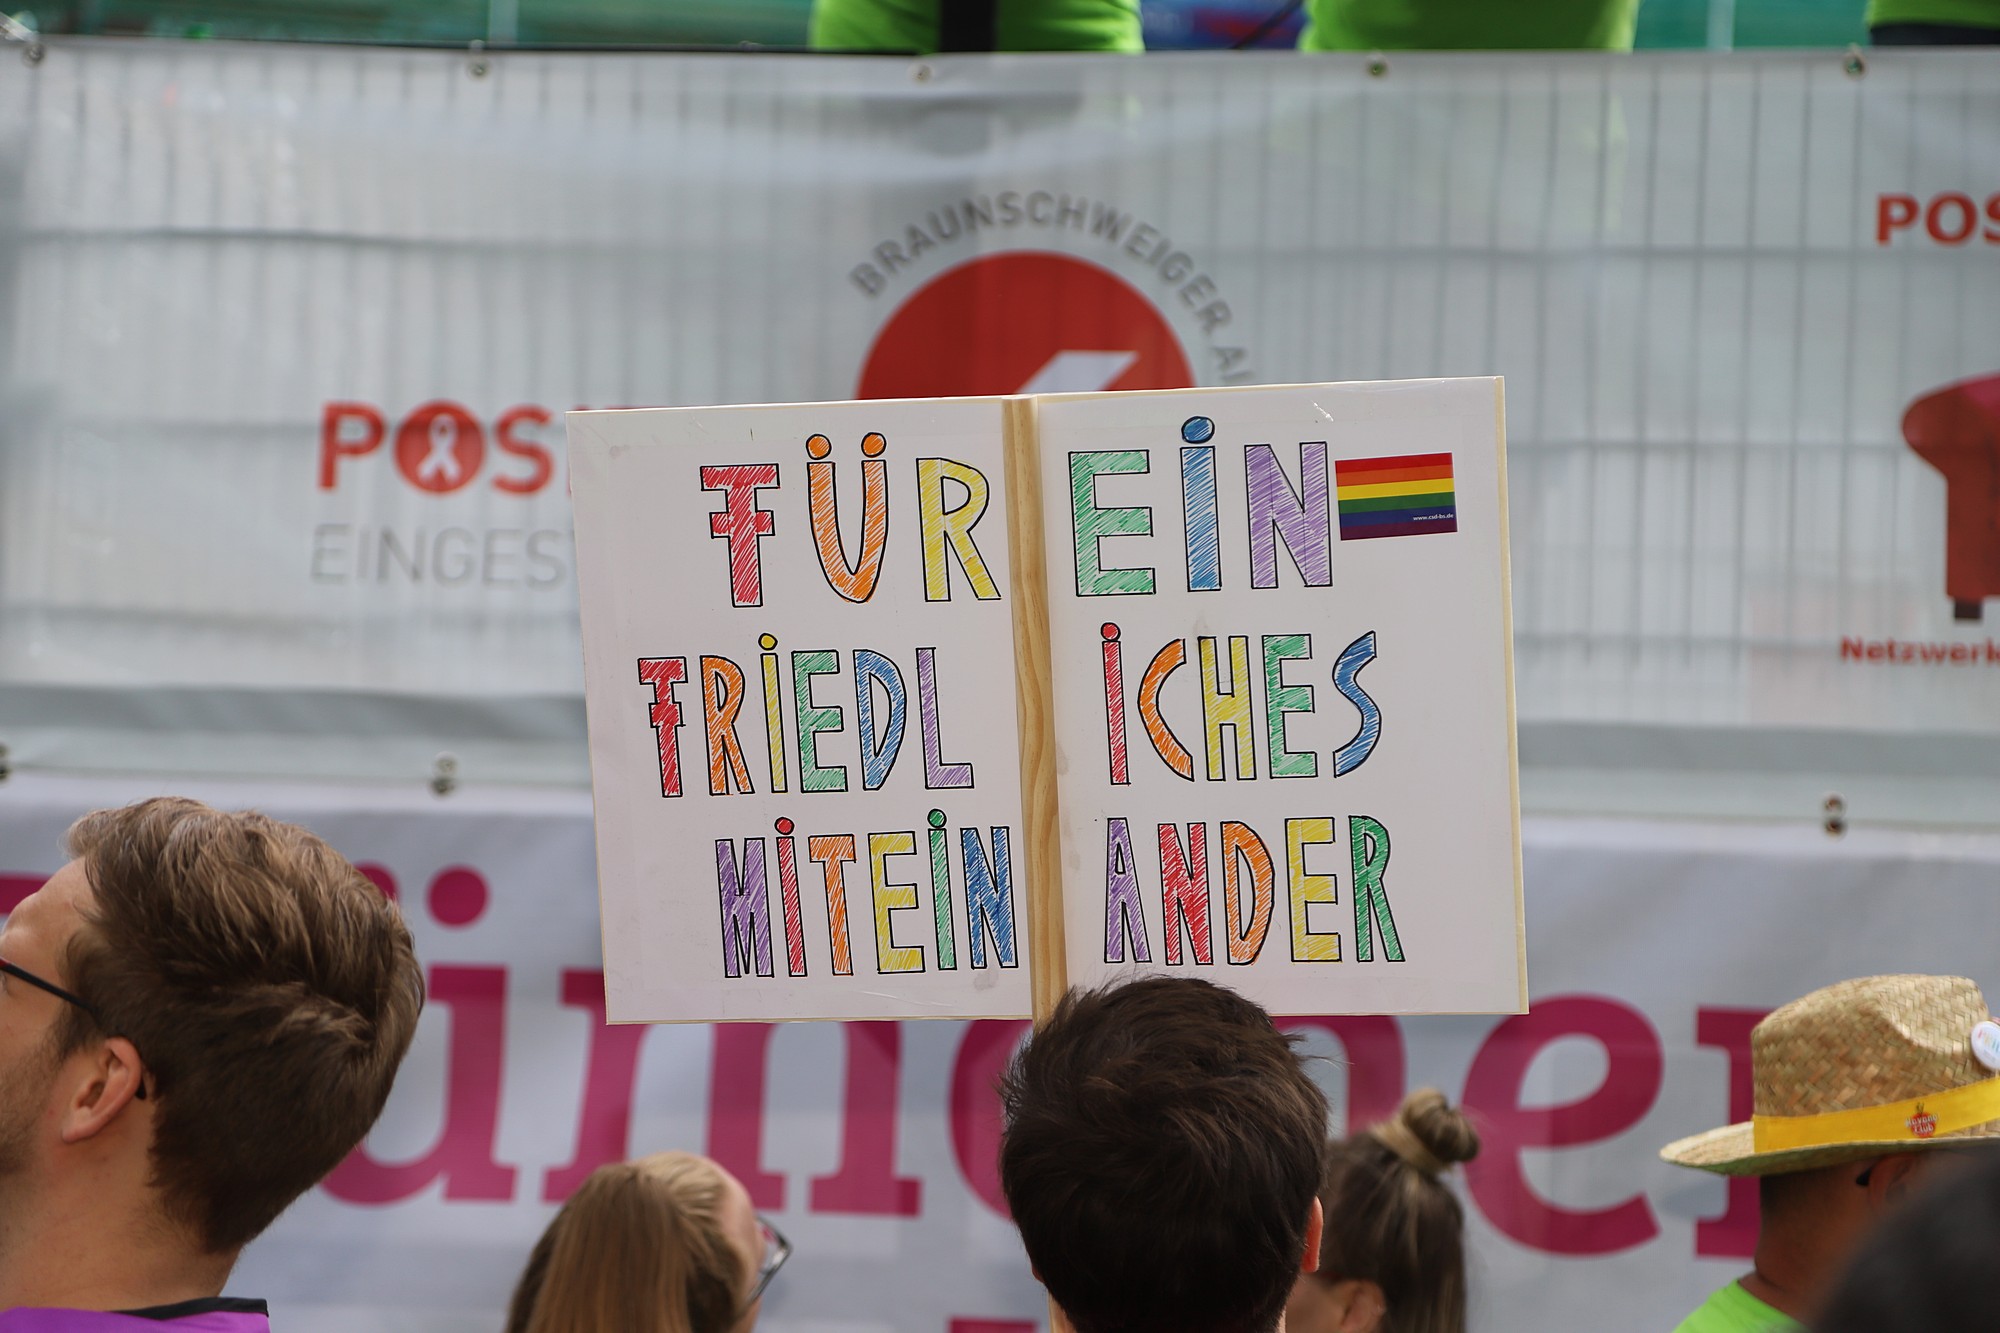 BRAUNSCHWEIGER
POS
EINGES
POS
Netzwerk
FÜR EIN
www.csd-bs.de
FRIEDL ICHES
MITEIN ANDER